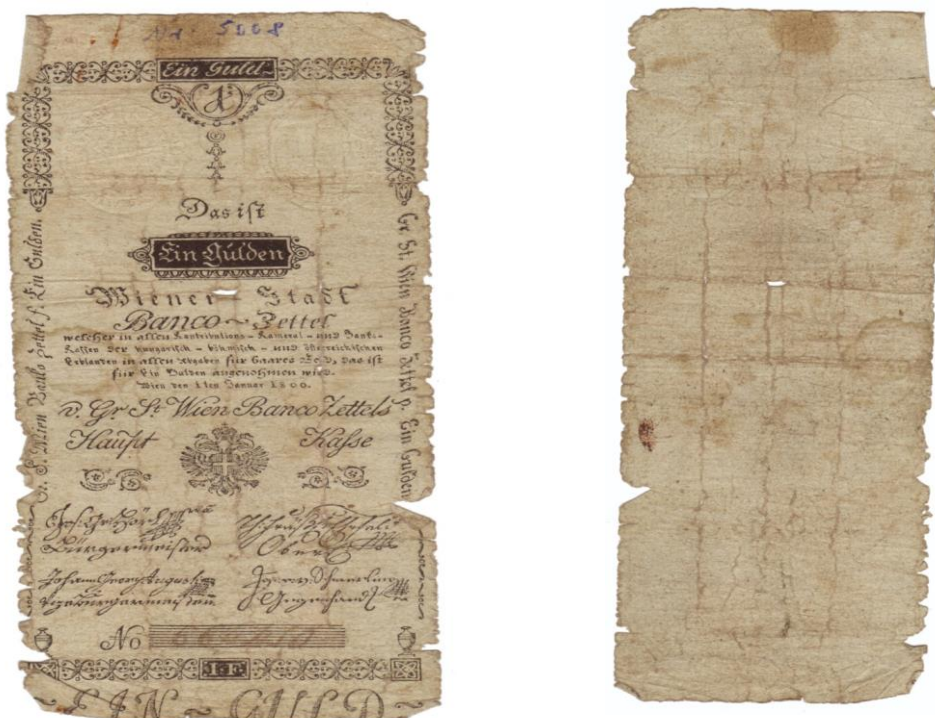 5008
Ein Guld
1
Das ist
Ein Gulden
Wiener Stadt
Banco ~ Zettel
welcher in allen Kontributions - Kameral - und Banko-
Kassen der hungarisch - böhmisch - und österreichischen
Erblanden in allen Abgaben für baares Geld, das ist
für Ein Gulden angenohmen wird.
Wien den 1ten Januar 1800.
v. Gr St. Wien Banco Zettels
Haupt Kasse
Bürgermeister
Ober
Johann Georg Augusti
No
1 F
EIN ~ GULD ~
Gr. St. Wien Banko Zettel f. Ein Gulden.
Gr. St. Wien Banco Zettel p. Ein Gulden